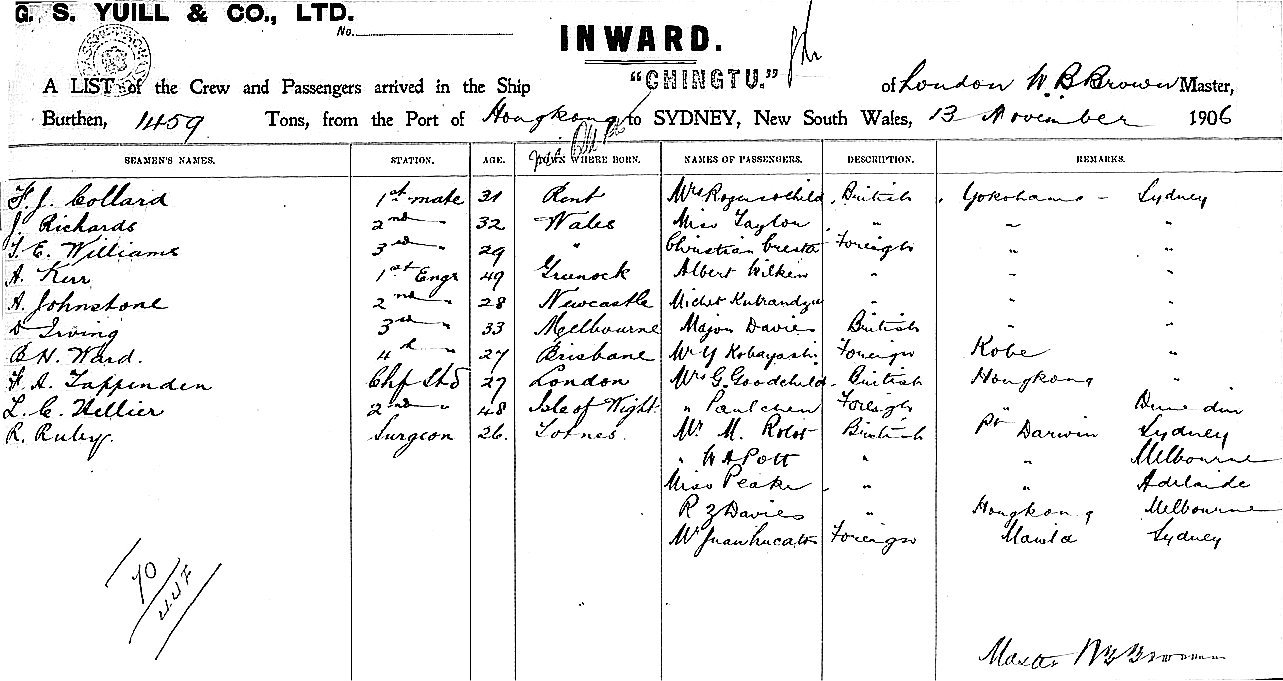 G. S. YUILL & CO., LTD.
No.
INWARD.
A LIST of the Crew and Passengers arrived in the Ship "CHINGTU." of London W. B Brown Master,
Burthen, 1459 Tons, from the Port of Hongkong to SYDNEY, New South Wales, 13 November 1906
SEAMEN'S NAMES. STATION. AGE. WHERE BORN. NAMES OF PASSENGERS. DESCRIPTION. REMARKS.
F. J. Collard 1st mate 31 Kent Mrs British Yokohama - Sydney
J. Richards 2nd " 32 Wales Miss Taylor " " "
T. E. Williams 3rd " 29 " Christian Foreign " "
A. Kerr 1st Engr 49 Greenock Albert Wilkin " " "
A. Johnstone 2nd " 28 Newcastle Michet " " "
D Irving 3rd " 33 Melbourne Major Davies British " "
B. H. Ward. 4th " 27 Brisbane Mr Y Kobayashi Foreign Kobe "
F. A. Tappenden Chf Std 27 London Mrs G. Goodchild British Hongkong "
L. C. Hillier 2nd " 48 Isle of Wight. " Paulchen Foreign " Dunedin
R. Ruby. Surgeon 26. Totnes. Mr M. British Pt Darwin Sydney
" W A Pott " " Melbourne
Miss Peake " " Adelaide
R Z Davies " Hongkong Melbourne
Mr Foreign Manila Sydney
10
Master W B Brown